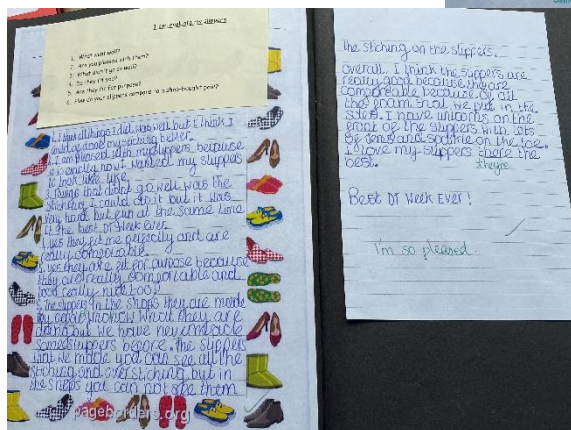 I can evaluate my slippers
1. What went well?
2. Are you pleased with them?
3. What didn't go so well?
4. Do they fit you?
5. Are they fit for purpose?
6. How do your slippers compare to a shop-bought pair?
1. I think I did was well but I think I
could of done my stiching better.
2. I am pleased with my slippers because
it is exactly how I wanted my slippers
to look like
3. Things that didnt go well was the
stiching I could do it but it was
very hard but fun at the same time
it the best DT week ever.
4. yes they fit me perfectly and are
really comfortable.
5. yes they are fit for purpose because
they are really comfortable and
look really nice too!
6. The slippers in the shops they are made
by people who know what they are
doing but we have never made
slippers before. the slippers
that we made you can see all the
stiching and over stiching but in
the shops you can not see them
pageborders.org
the stiching on the slippers.
overall. I think the slippers are
really good because they are
comfortable because of all
the foam that we put in the
sides. I have unicorns on the
front of the slippers with lots
of gems and sparkle on the toe.
I love my slippers there the
they're
best.
Best DT week ever!
I'm so pleased.